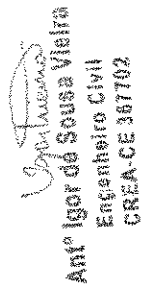 Antº Igor de Sousa Vieira
Engenheiro Civil
CREA-CE 387702